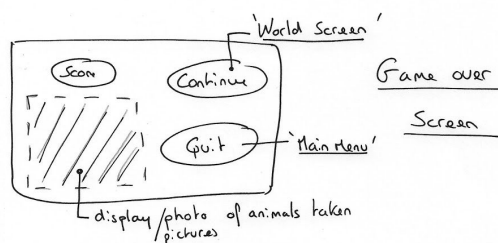 'World Screen'
Score
Continue
Game over
Screen
Quit
'Main Menu'
display/photo of animals taken
pictures